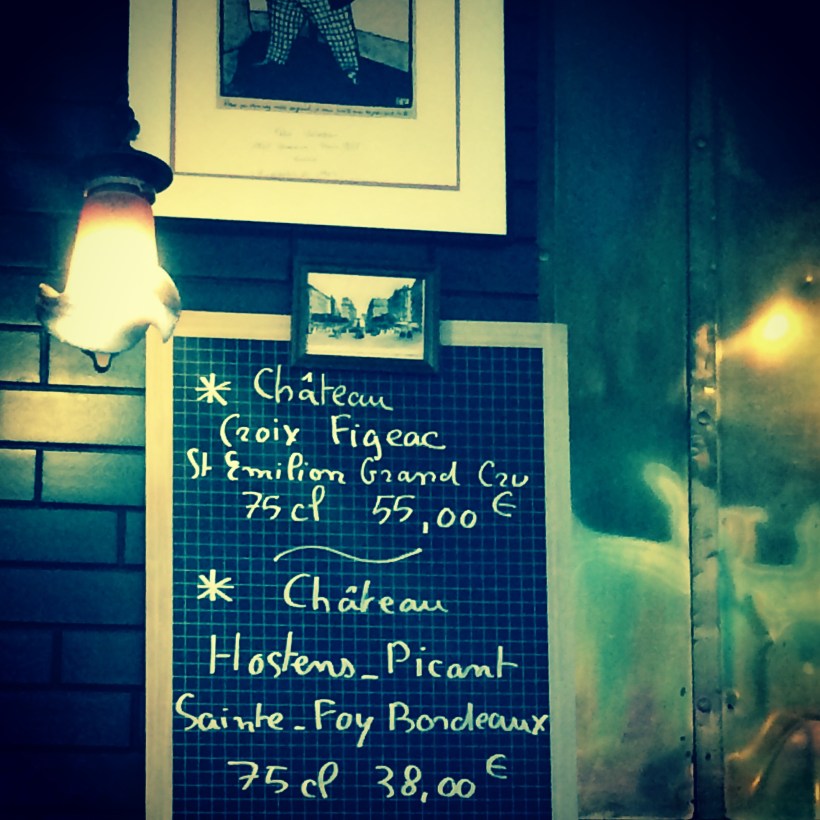 * Château
Croix Figeac
St Emilion Grand Cru
75cl 55,00 €
* Château
Hostens_Picant
Sainte-Foy Bordeaux
75cl 38,00 €